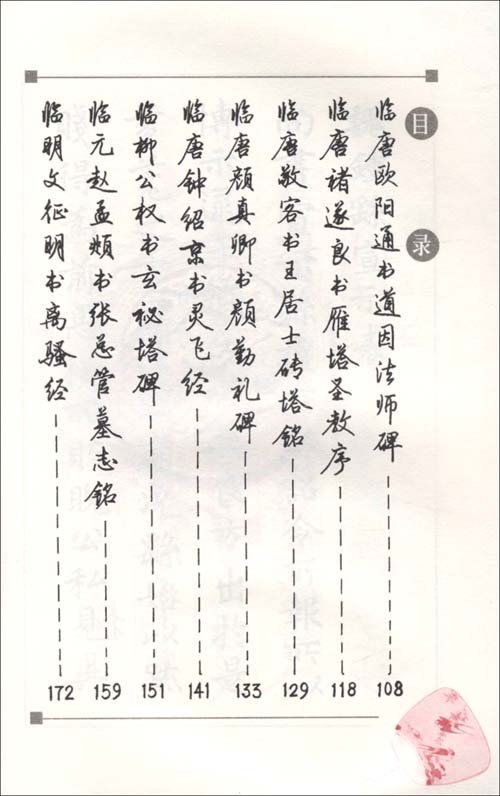 目录
临唐欧阳通书道因法师碑 108
临唐褚遂良书雁塔圣教序 118
临唐敬客书王居士砖塔铭 129
临唐颜真卿书颜勤礼碑 133
临唐钟绍京书灵飞经 141
临柳公权书玄秘塔碑 151
临元赵孟頫书张总管墓志铭 159
临明文征明书离骚经 172